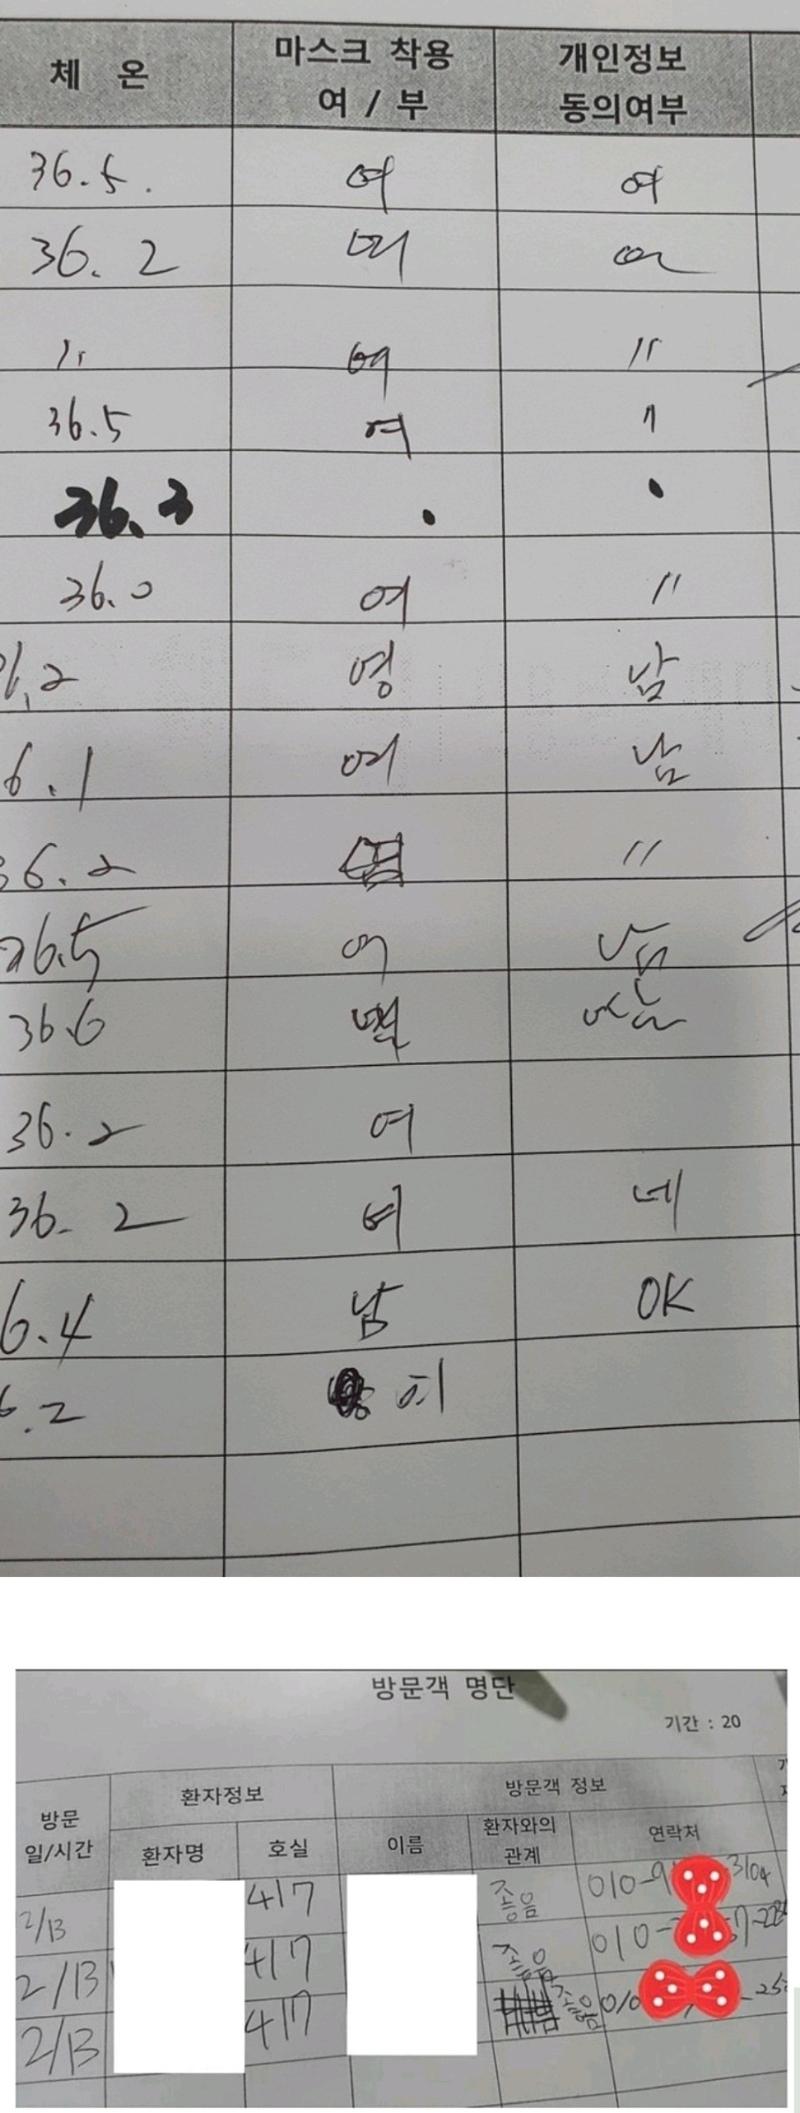 체 온 마스크 착용 개인정보
여 / 부 동의여부
36.5. 여 여
36.2 여 여
〃 여 〃
36.5 여 〃
36.3 . .
36.0 여 〃
영 남
6.1 여 남
36.2 〃
36.5 여 남
36.6
36.2 여
36.2 여 네
6.4 남 OK
6.2 여
방문객 명단
기간 : 20
방문 환자정보 방문객 정보
일/시간 환자명 호실 이름 환자와의 연락처
관계
2/13 417 좋음 010-9 3104
2/13 417 좋음 010-
2/13 417 좋음 010